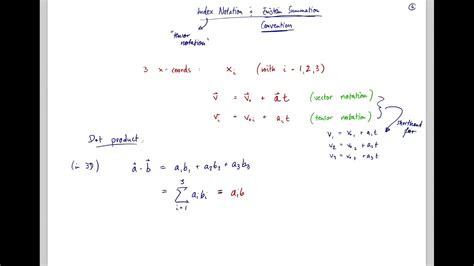 Index Notation & Einstein Summation
Convention
"tensor
notation"
3 x-coords : xᵢ (with i = 1,2,3)
v⃗ = v⃗₀ + a⃗ t (vector notation)
vᵢ = v₀ᵢ + aᵢt (tensor notation)
shorthand
for
v₁ = v₀₁ + a₁t
v₂ = v₀₂ + a₂t
v₃ = v₀₃ + a₃t
Dot product :
(in 3D) a⃗ · b⃗ = a₁b₁ + a₂b₂ + a₃b₃
= ∑ᵢ₌₁³ aᵢbᵢ = aᵢb